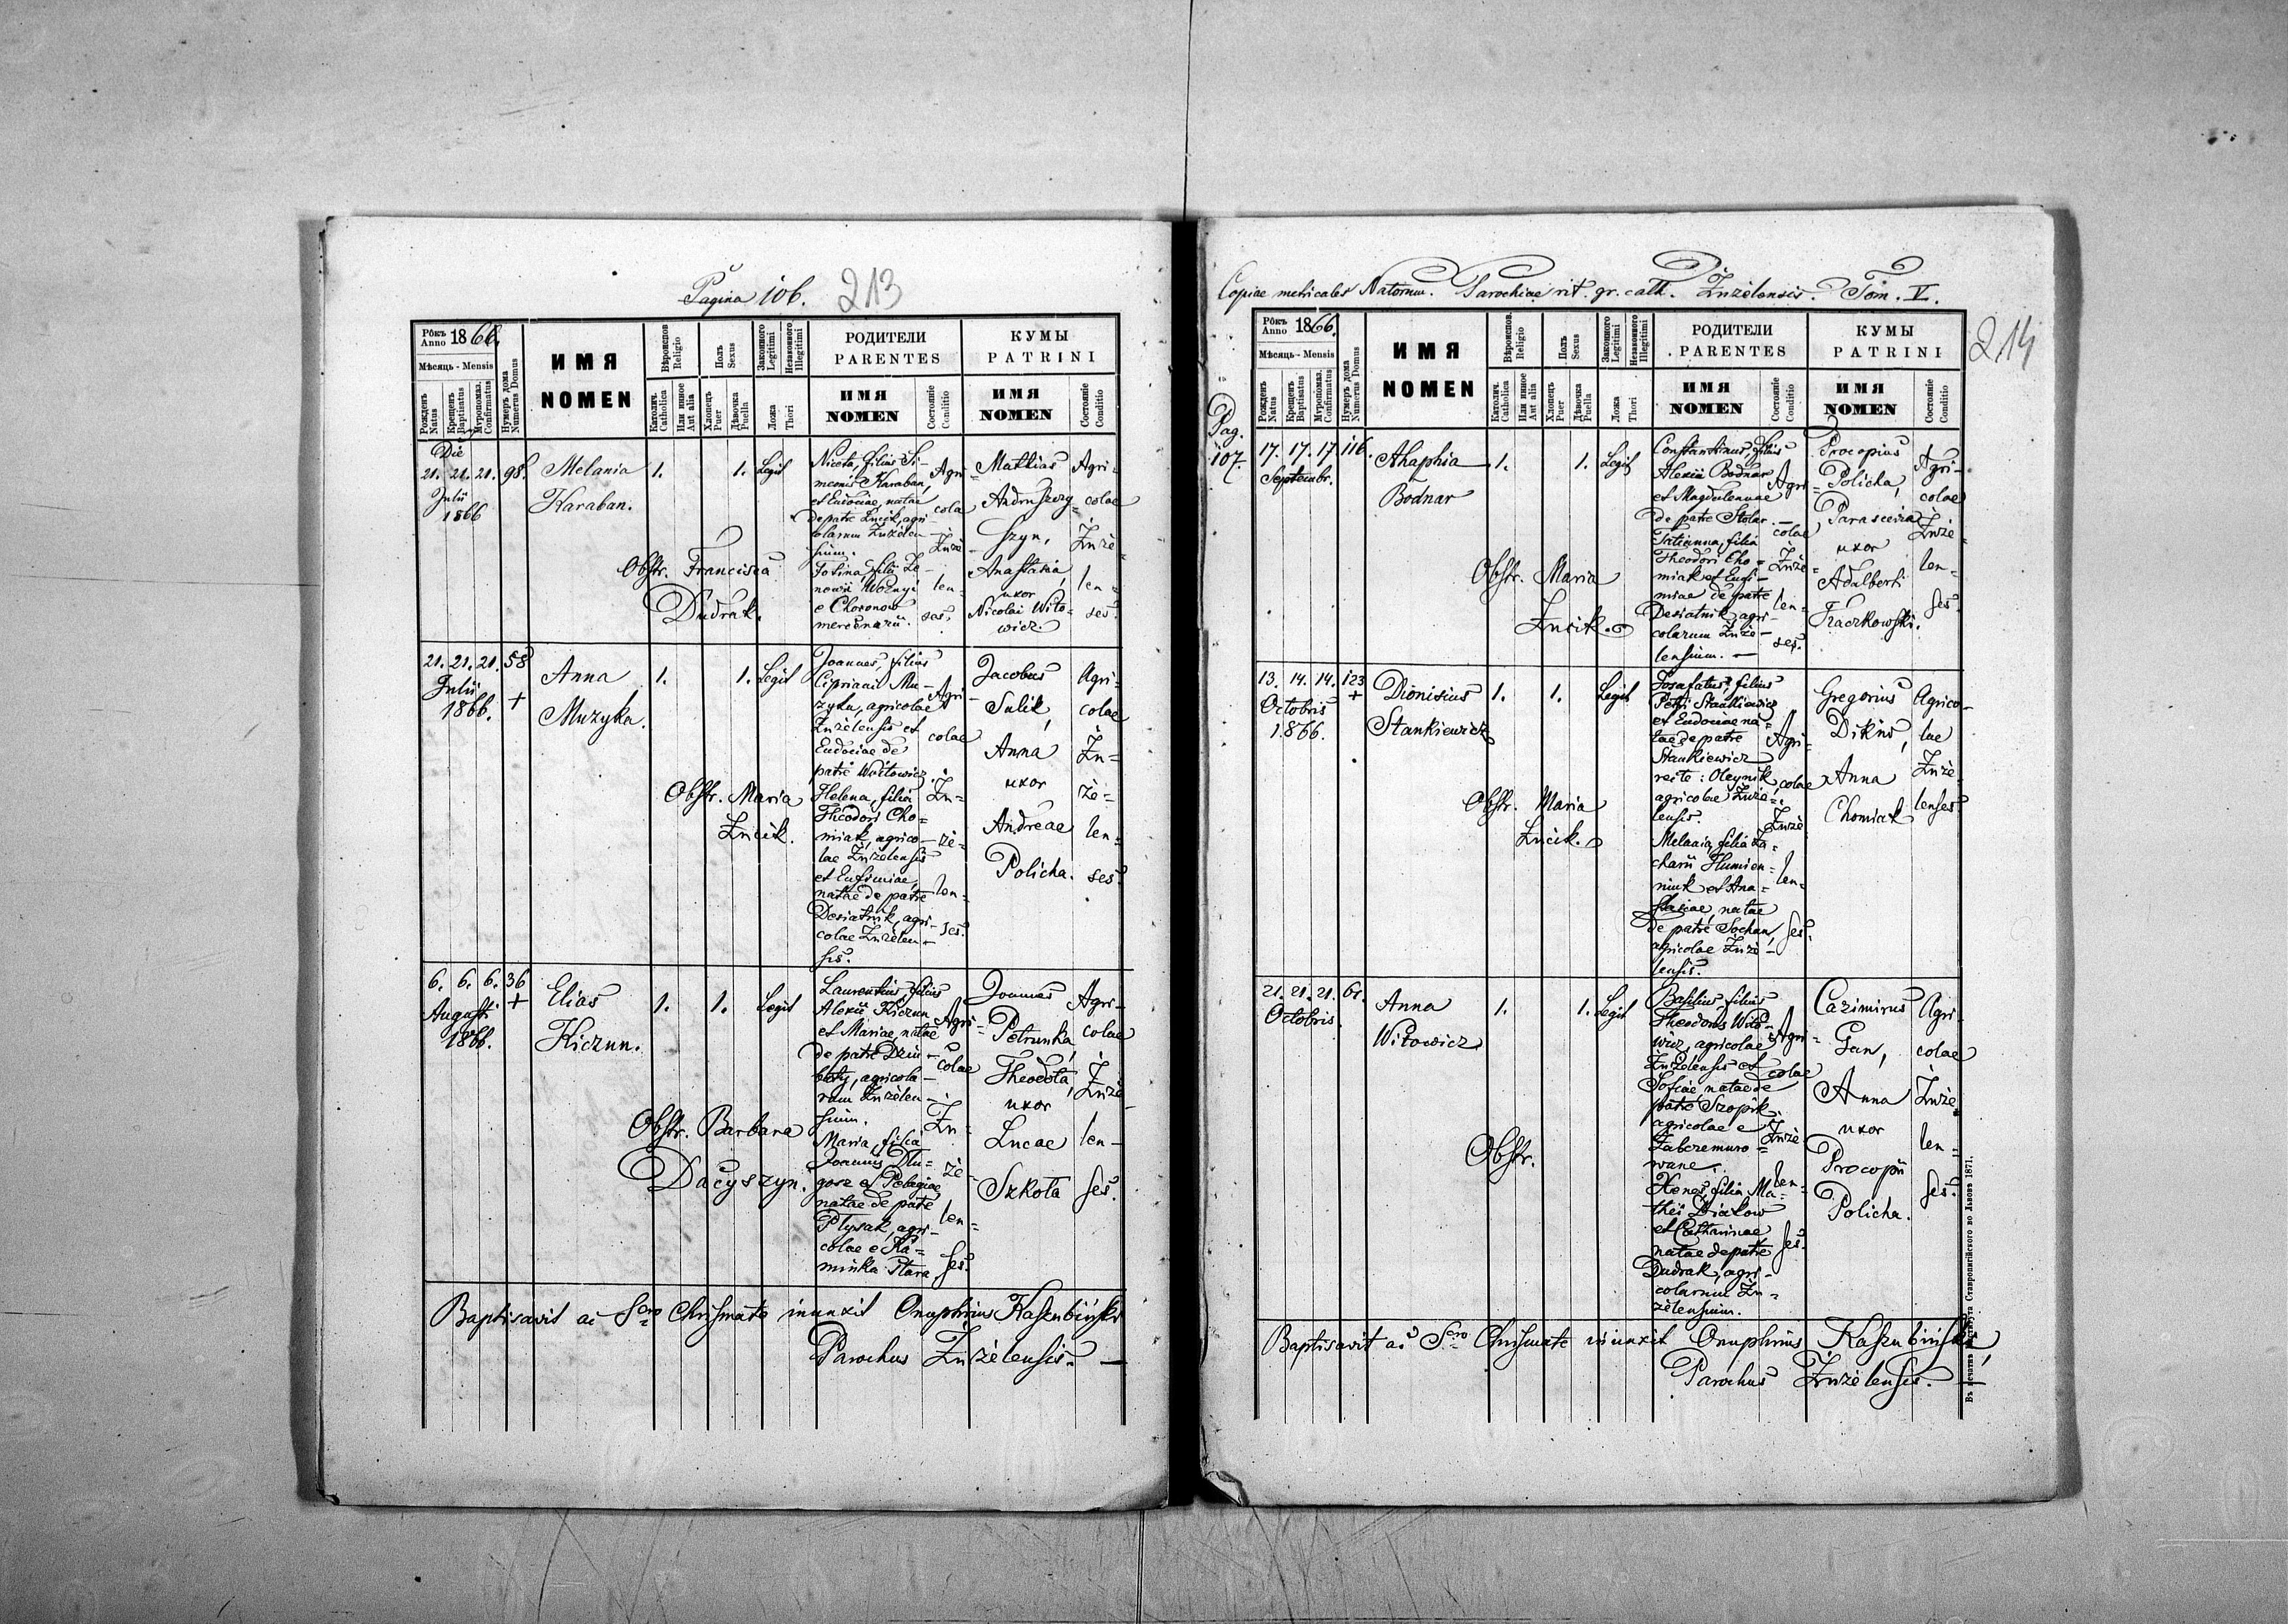 Pagina 106. 213
Рôкъ Anno 1866.
Мѣсяць - Mensis
Рожденъ Natus
Крещенъ Baptisatus
Мѵропомаз. Confirmatus
Нумеръ дома Numerus Domus
ИМЯ
NOMEN
Вѣроиспов. Religio
Католич. Catholica
Или иное Aut alia
Полъ Sexus
Хлопецъ Puer
Дѣвочка Puella
Законного Legitimi
Незаконного Illegitimi
Ложа Thori
РОДИТЕЛИ
PARENTES
ИМЯ
NOMEN
Состояніе Conditio
КУМЫ
PATRINI
ИМЯ
NOMEN
Состояніе Conditio
Die
21. 21. 21. 98.
Julii
1866
Melania
Karaban.
1. 1. Legit
Obstr. Francisca
Dudrak.
Niceta, filius Si-
meonis Karaban,
et Eudociae, natae
de patre Łucik, agri-
colarum Żużelen-
sium.
mercenarii.
Agri-
cola
Żużè
len-
ses.
Mathias
Andrujezy-
szyn,
Anastasia,
uxor
Nicolai Wito-
wicz.
Agri-
colae
Żużè-
len-
ses.
21. 21. 21. 58
Julii
1866. +
Anna
Muzyka.
1. 1. Legit
Obstr. Maria
Łucik.
Joannes, filius
Cipriani Mu-
zyka, agricolae
Żużèlensis et
Eudociae de
patre Witowicz.
Helena, filia
Theodori Cho-
miak, agrico-
lae Żużèlensis
et Eufimiae,
natae de patre
Desiatnik, agri-
colae Żużèlen-
sis.
Agri-
colae
Żu-
żè-
len-
ses.
Jacobus
Sulik,
Anna
uxor
Andreae
Policha.
Agri-
colae
Żu-
żè-
len-
ses.
6. 6. 6. 36
Augusti +
1866.
Elias
Kiczun.
1. 1. Legit
Obstr. Barbara
Dacyszyn.
Laurentius, filius
Alexii Kiczun
et Mariae, natae
de patre Dziu-
baty, agricola-
rum Żużèlen-
sium.
Maria, filia
Joannis Dłu-
gosz et Pelagiae
natae de patre
Ptysak, agri-
colae e Ka-
minka Stara
Agri-
colae
Żu-
żè-
len-
ses.
Joannes
Petrunka,
Theodota,
uxor
Lucae
Szkoła
Agri-
colae
Żużè-
len-
ses.
Baptisavit ac Scro Chrismate inunxit Onuphrius Kaszubiński
Parochus Żużèlensis. —
Copiae metricales Natorum. Parochiae rit. gr. cath. Żużèlensis. Tom. V.
214
Pag.
107.
Рôкъ Anno 1866.
Мѣсяць - Mensis
Рожденъ Natus
Крещенъ Baptisatus
Мѵропомаз. Confirmatus
Нумеръ дома Numerus Domus
ИМЯ
NOMEN
Вѣроиспов. Religio
Католич. Catholica
Или иное Aut alia
Полъ Sexus
Хлопецъ Puer
Дѣвочка Puella
Законного Legitimi
Незаконного Illegitimi
Ложа Thori
РОДИТЕЛИ
PARENTES
ИМЯ
NOMEN
Состояніе Conditio
КУМЫ
PATRINI
ИМЯ
NOMEN
Состояніе Conditio
17. 17. 17 116.
Septembr.
Ahaphia
Bodnar
1. 1. Legit
Obstr. Maria
Łucik.
Constantinus, filius
Alexii Bodnar
et Magdalenae
de patre Stolar. —
Tatianna, filia
Theodori Cho-
miak et Eufi-
miae de patre
Desiatnik, agri-
colarum Żużè-
lensium. —
Agri-
colae
Żużè-
len-
ses.
Procopius
Policha,
Parascevia
uxor
Adalberti
Traczkowski.
Agri-
colae
Żużè-
len-
ses.
13. 14. 14. 123
Octobris +
1866.
Dionisius
Stankiewicz
1. 1. Legit
Obstr. Maria
Łucik.
Josafatus, filius
Petri Stankiewicz
et Eudociae na-
tae de patre
Stankiewicz
recte: Oleynik,
agricolae Żużè-
lensis.
Melania, filia Za-
charii Humien-
niuk et Ana-
stasiae, natae
de patre Sochan,
agricolae Żużè-
lensis.
Agri-
colae
Żużè
len-
ses.
Gregorius
Dikus,
Anna
Chomiak
Agrico-
lae
Żużè-
lenses.
21. 21. 21. 61.
Octobris.
Anna
Witowicz
1. 1. Legit
Obstr.
Basilius, filius
Theodorus Wito-
wicz, agricolae
Żużèlensis et
Sofiae natae de
patre Szopik,
agricolae e
Zabczemuro-
wane.
Xenes, filia Ma-
thei Diakow
et Catharinae,
natae de patre
Dudrak, agri-
colarum Żu-
żèlensium.
Agri-
colae
Żużè-
len-
ses.
Cazimirus
Gan,
Anna
uxor
Procopii
Policha.
Agri-
colae
Żużè-
len-
ses.
Baptisavit ac Scro Chrismate inunxit Onuphrius Kaszubiński,
Parochus Żużèlensis. —